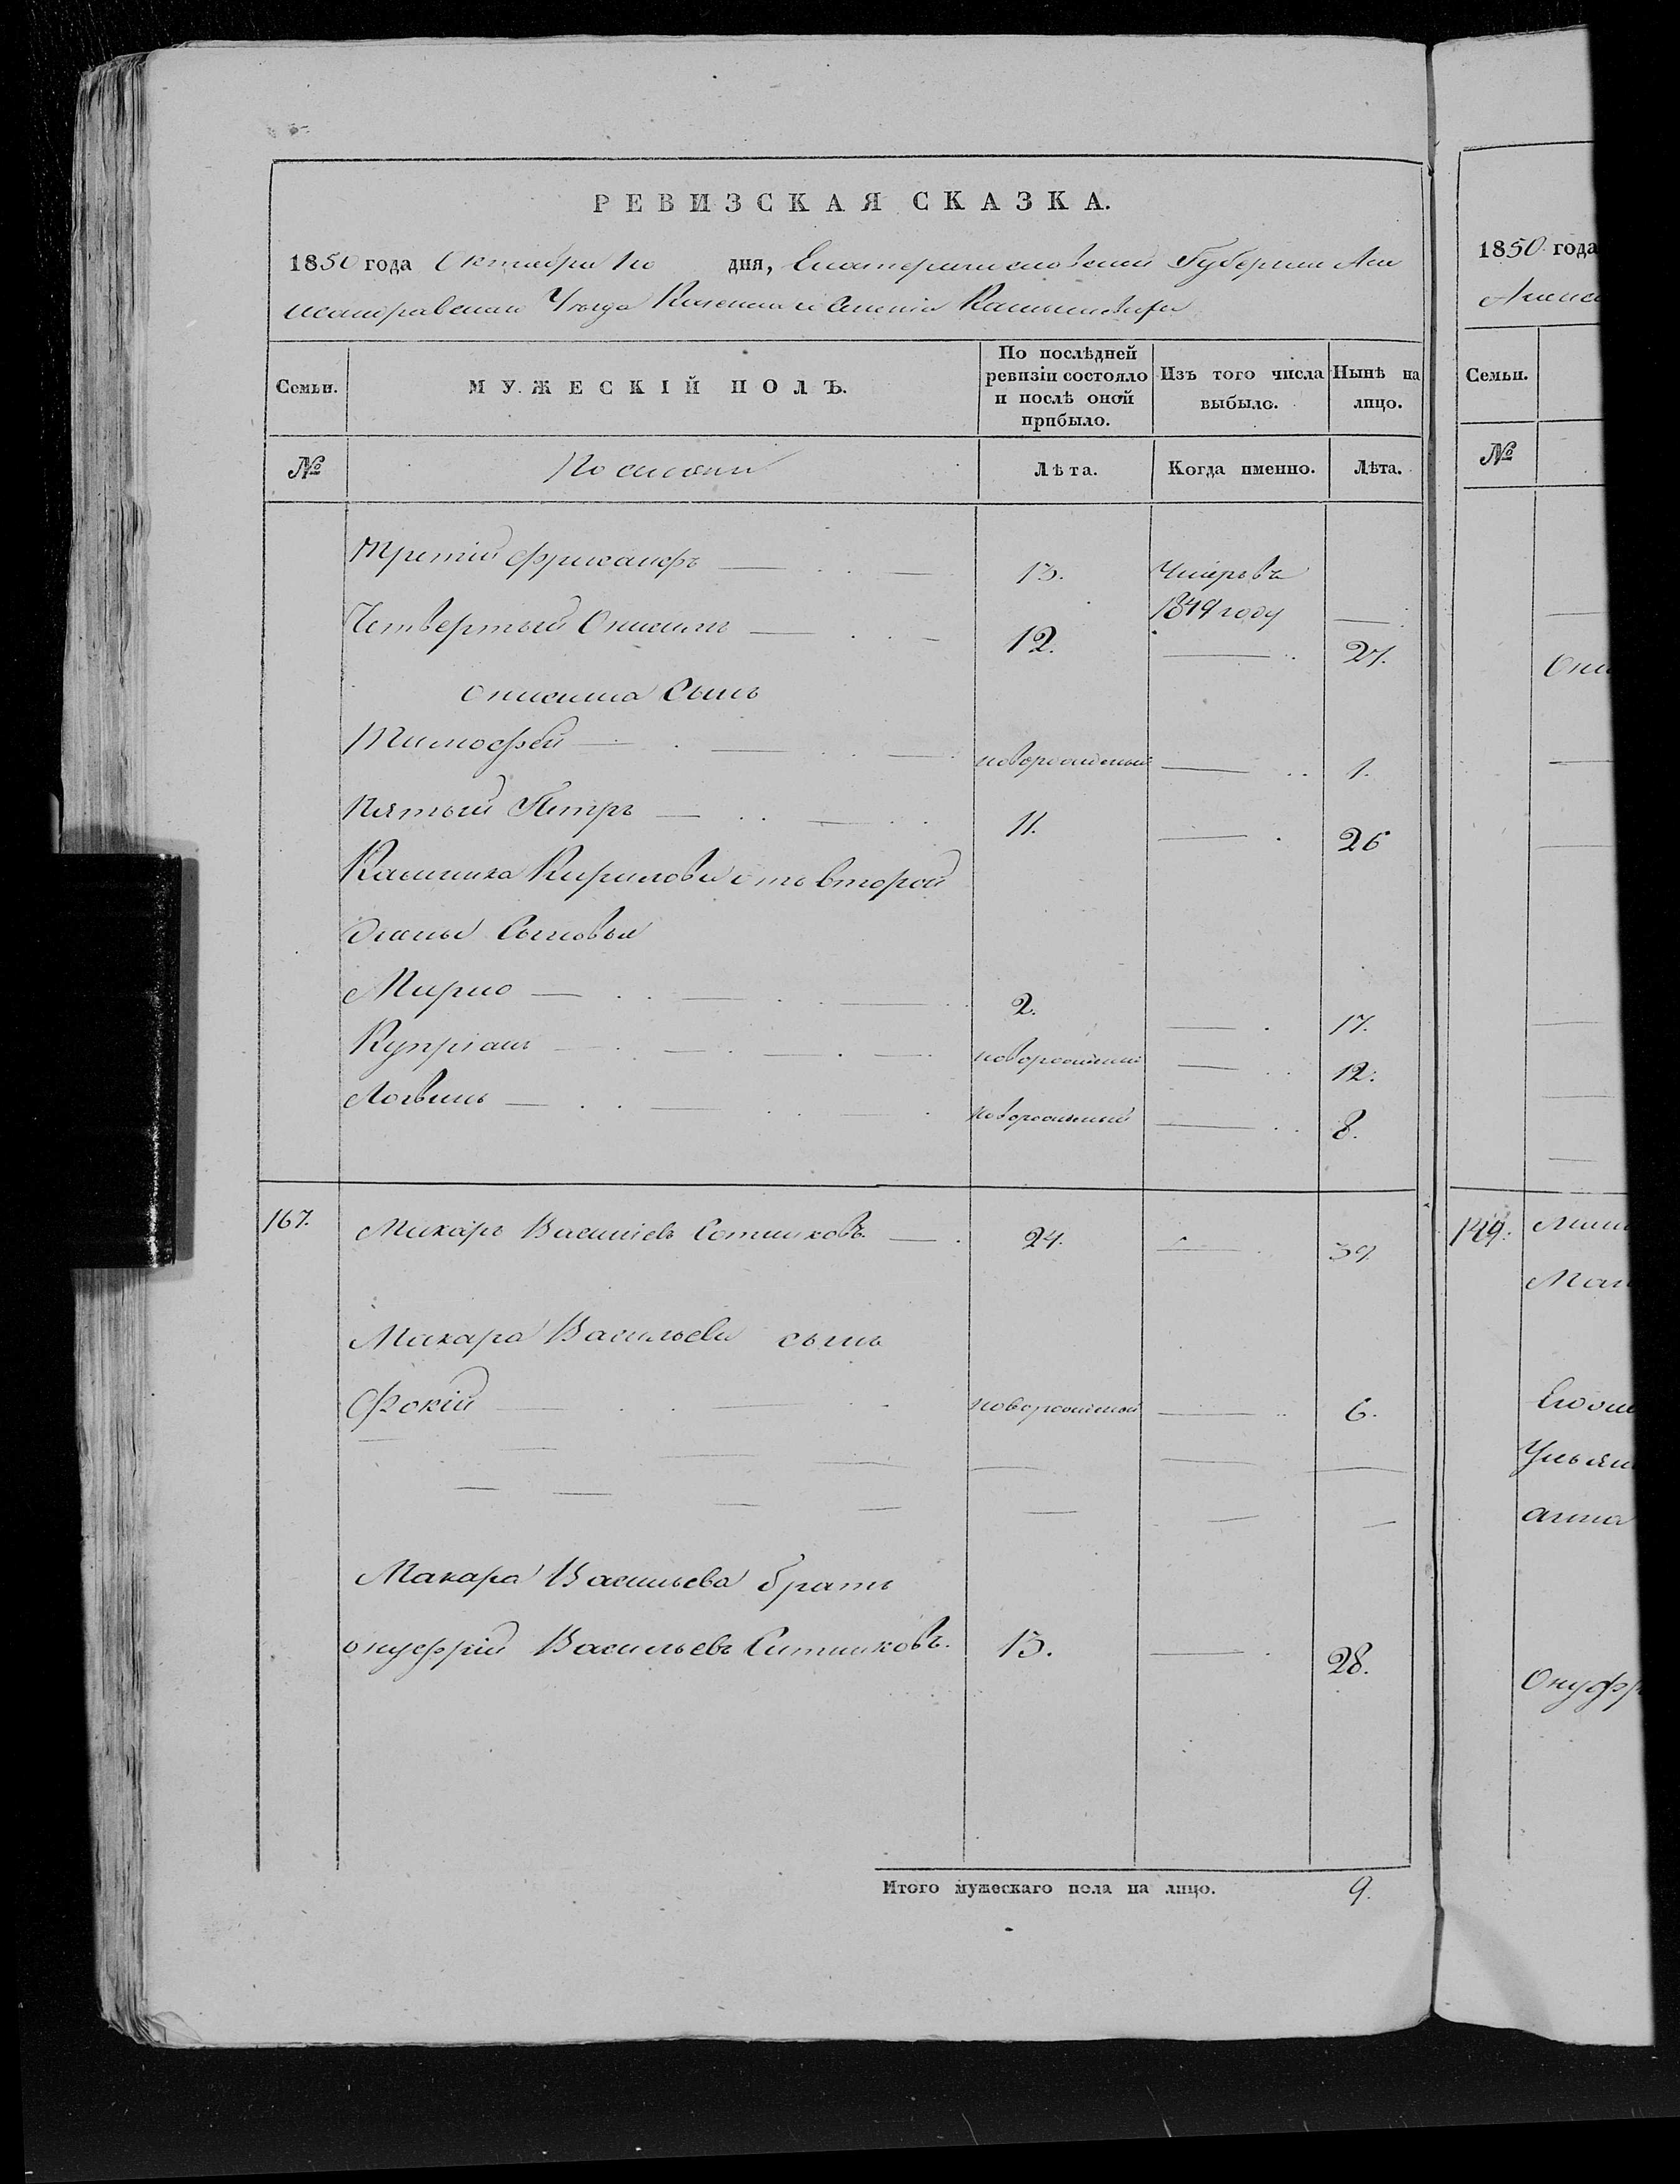 РЕВИЗСКАЯ СКАЗКА.
1850 года Октября дня, Екатеринославской Губернии Але
ксандровскаго Уезда
Семьи. МУЖЕСКІЙ ПОЛЪ. По послѣдней ревизіи состояло и послѣ оной прибыло. Изъ того числа выбыло. Нынѣ на лицо.
№ Лѣта. Когда именно. Лѣта.
Третій 13. Умеръ въ
1849 году
Четвертый Онисимъ 12. 27.
Онисима Сынъ
Тимофей новорожденный 1.
Пятый Петръ 11. 26
Кирилова отъ второй
жены Сыновья
Мирно 2. 17.
Купріянъ новорожденный 12.
Логвинъ новорожденный 8.
167. Макаръ Васильевъ Сотниковъ 24. 39.
Макара Васильева сынъ
Фокій новорожденный 6.
Макара Васильева братъ
Онуфрій Васильевъ Сотниковъ. 13. 28.
Итого мужескаго пола на лицо. 9.
1850 года
Семьи.
№
Они
149.
Ульян
анна
Онуфр